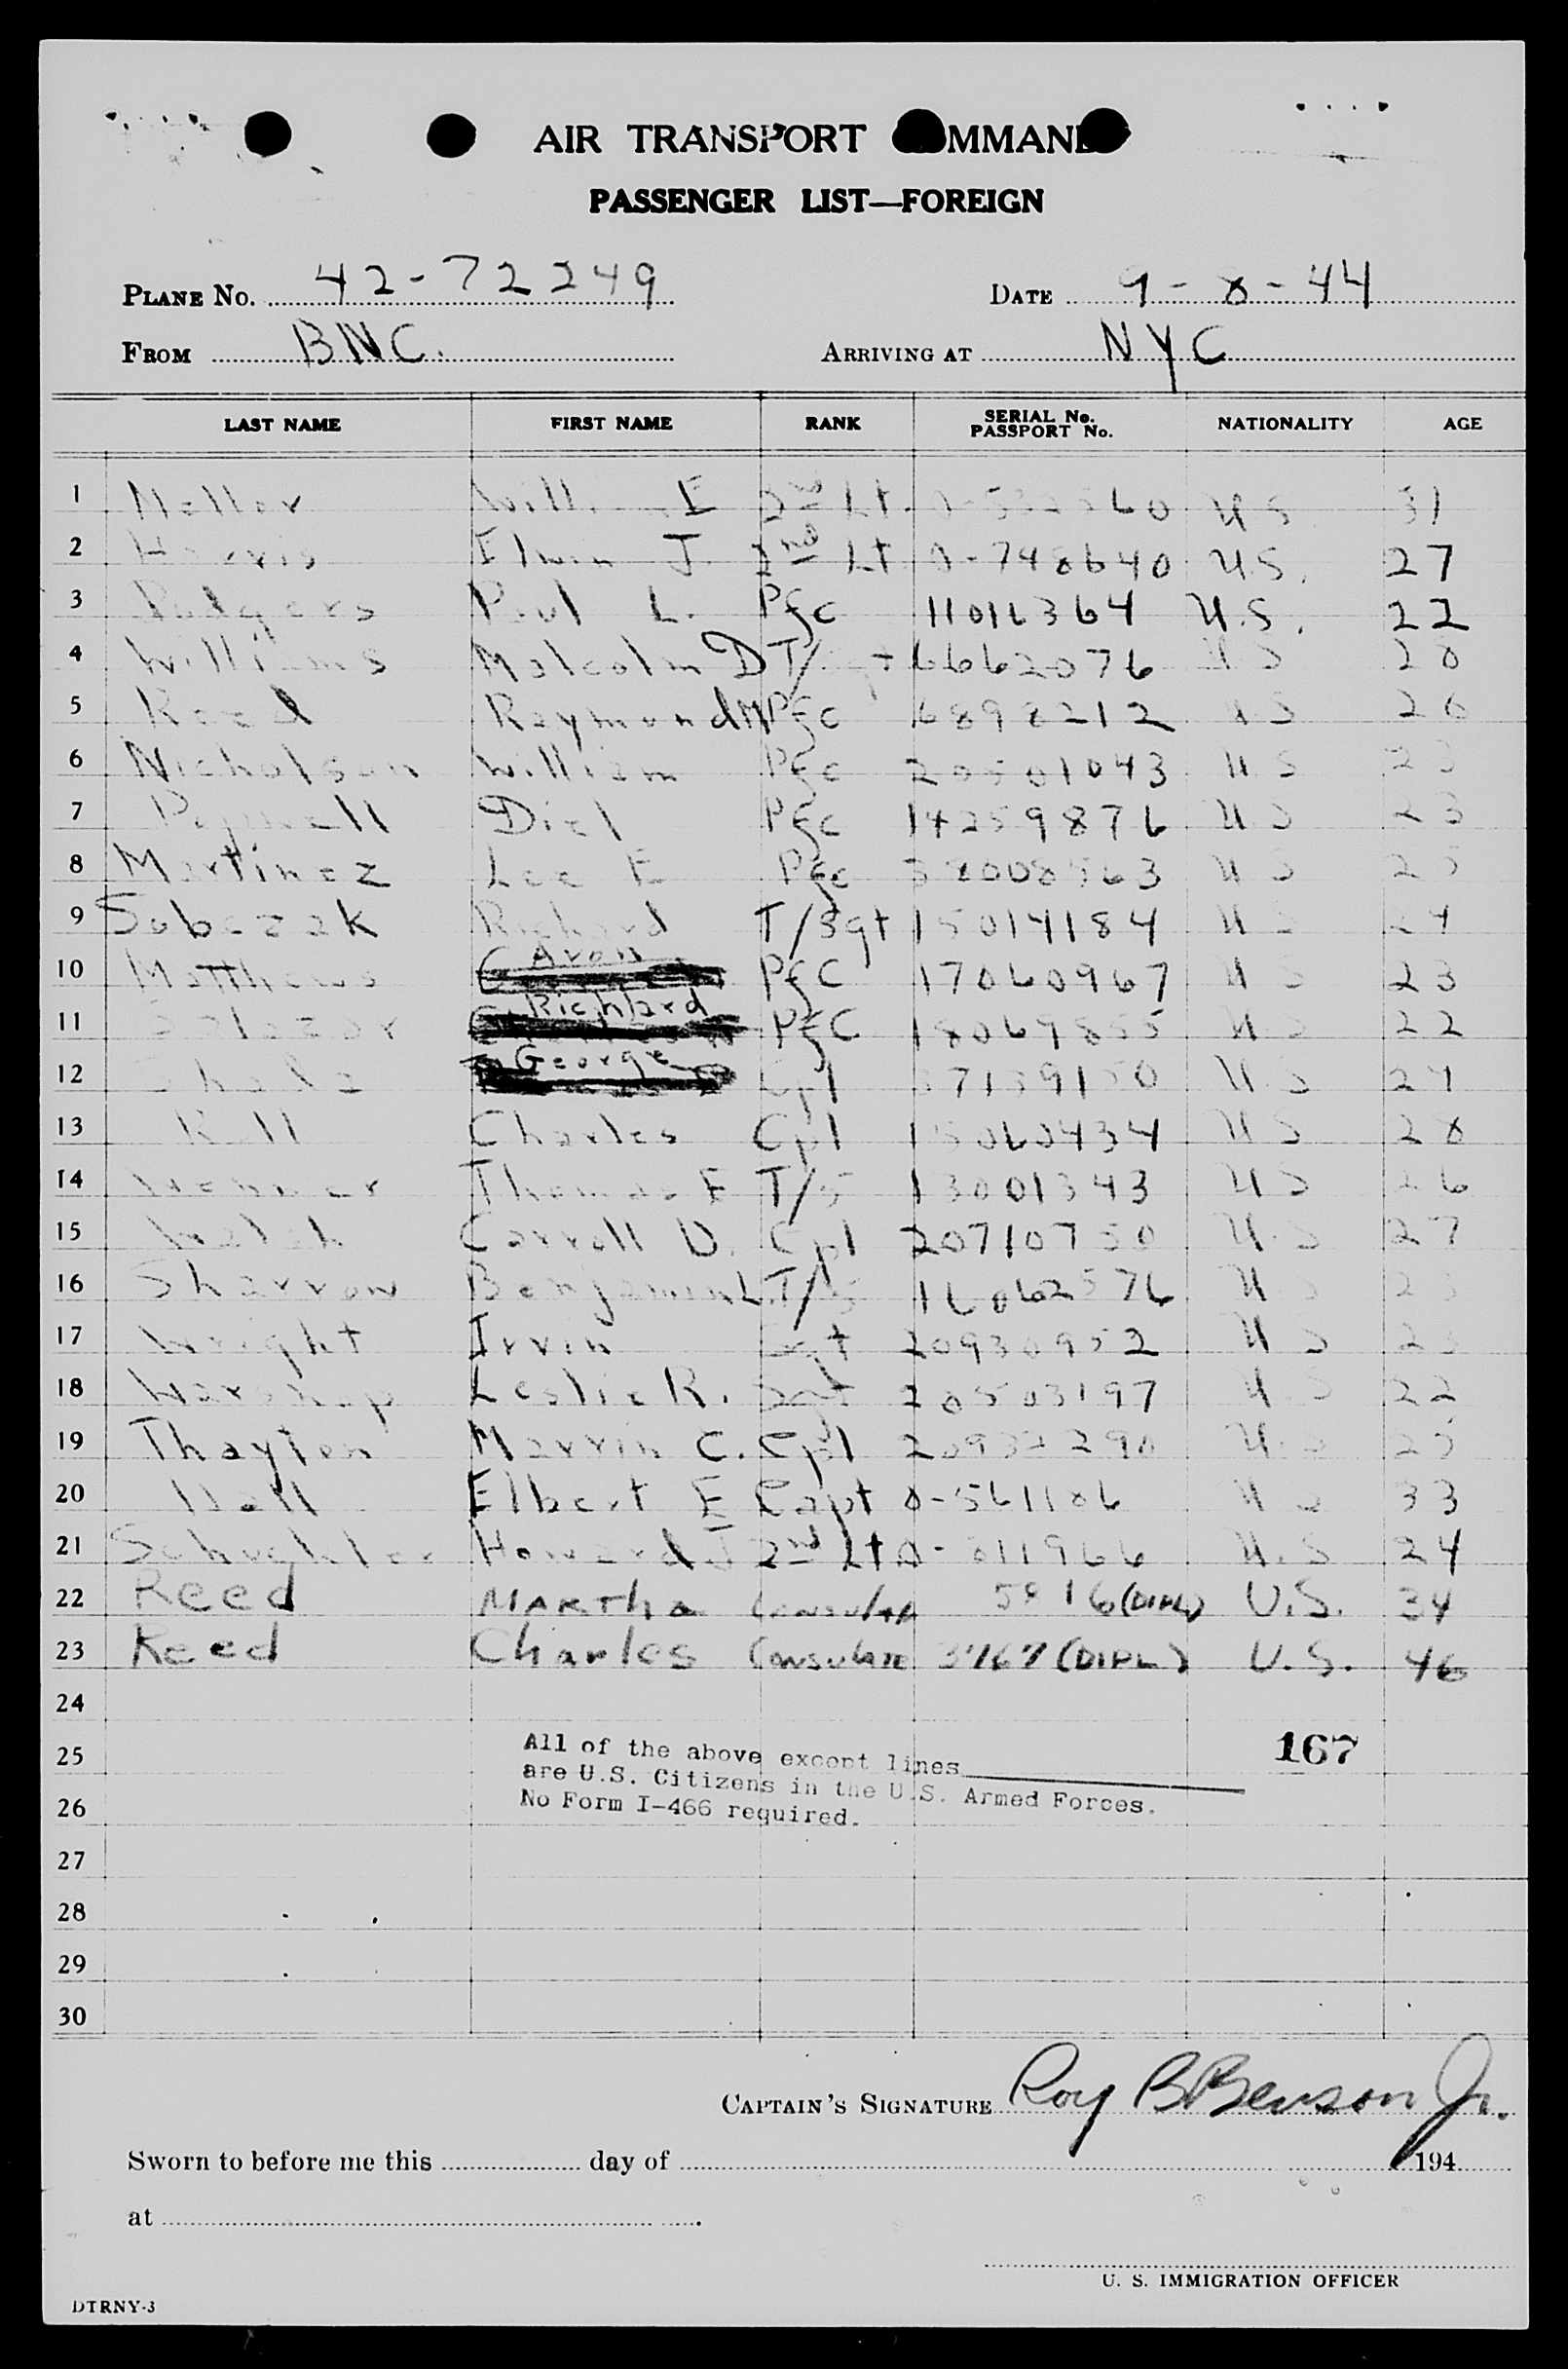 AIR TRANSPORT COMMAND
PASSENGER LIST—FOREIGN
PLANE No. 42-72249 DATE 9-8-44
FROM BNC. ARRIVING AT NYC
LAST NAME FIRST NAME RANK SERIAL No. PASSPORT No. NATIONALITY AGE
1 E 2nd Lt. U S 31
2 Harris Elwin J. 2nd Lt O-748640 U.S. 27
3 Rodgers Paul L. Pfc 11016364 U.S. 22
4 Williams Malcolm D T/ 6662076 U S 28
5 Reed Raymond M Pfc 6898212 U S 26
6 Nicholson William Pfc 20501043 U S
7 Diel Pfc 14259876 U S 23
8 Martinez Lee E Pfc U S
9 Sobczak Richard T/Sgt 15014184 U S 24
10 Matthews Avon Pfc 17060967 U S 23
11 Salazar Richard Pfc U S 22
12 George Cpl U S 24
13 Charles Cpl 15060434 U S 28
14 Thomas E T/5 13001343 U S 26
15 Carroll D. Cpl 20710750 U.S 27
16 Sharrow Benjamin L T/5 16062576 U S
17 Wright Irvin Sgt 20930952 U S
18 Leslie R. Sgt 20503197 U.S 22
19 Thayten Marvin C. Cpl U.S
20 Elbert E Capt O-561106 U S 33
21 Howard J 2nd Lt U.S 24
22 Reed Martha Consular (DIPL) U.S. 34
23 Reed Charles Consulate (DIPL) U.S. 46
24
25 All of the above except lines 167
are U.S. Citizens in the U.S. Armed Forces.
26 No Form I-466 required.
27
28
29
30
CAPTAIN'S SIGNATURE Roy B Benson Jr.
Sworn to before me this day of 194
at
U. S. IMMIGRATION OFFICER
DTRNY-3